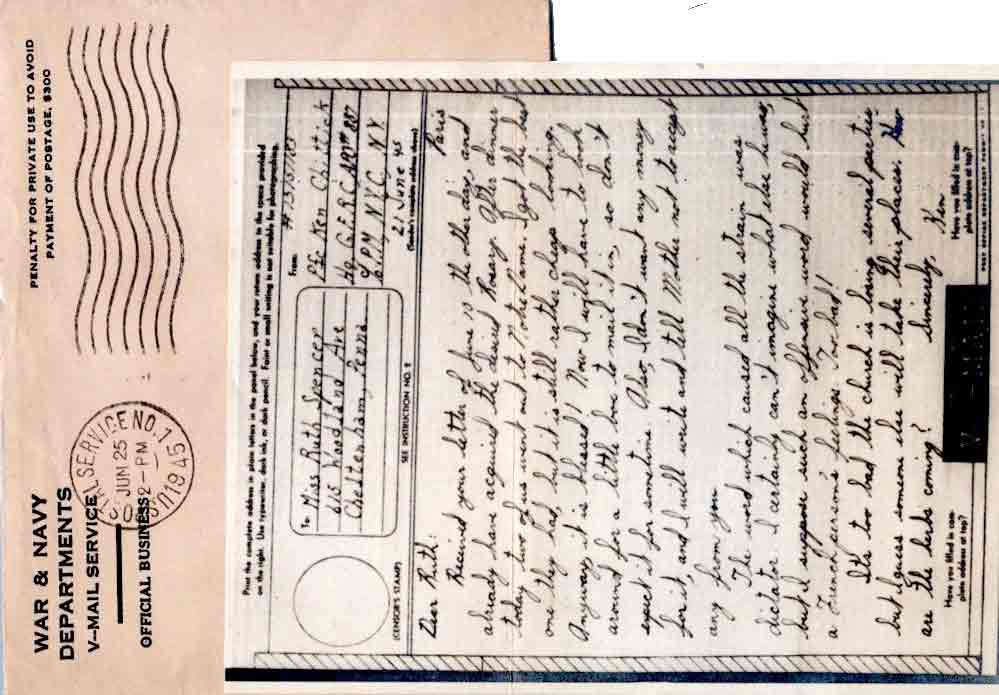 WAR & NAVY
DEPARTMENTS
V–MAIL SERVICE
OFFICIAL BUSINESS
PENALTY FOR PRIVATE USE TO AVOID
PAYMENT OF POSTAGE, $300
POSTAL SERVICE NO. 1
JUN 25
2–PM
1945
Print the complete address in plain letters in the panel below, and your return address in the space provided
on the right. Use typewriter, dark ink, or dark pencil. Faint or small writing is not suitable for photographing.
To
Miss Ruth Spencer
615 Woodland Ave
Cheltenham, Penna
From
Pfc Ken Chittick
NYC, N.Y.
21 June 45
(Sender's complete address above)
(CENSOR'S STAMP)
SEE INSTRUCTION NO. 2
Paris
Dear Ruth:
Received your letter of June 10 the other day, and
already have acquired the desired Rosary. After dinner
today two of us went out to Notre Dame. I got the best
one they had, but it is still rather cheap looking.
Anyway, it is blessed! Now I will have to look
around for a little box to mail it in, so don't
expect it for sometime. Also, I don't want any money
for it, and I will write and tell Mother not to accept
any from you.
The word which caused all the strain was
dictator. I certainly can't imagine what else it was,
but I suppose such an offensive word would hurt
a French person's feelings. Too bad!
It's too bad the church is losing several parties
but I guess someone else will take their places. How
are the kids coming?
Sincerely,
Ken
Have you filled in com-
plete address at top?
V–MAIL
Have you filled in com-
plete address at top?